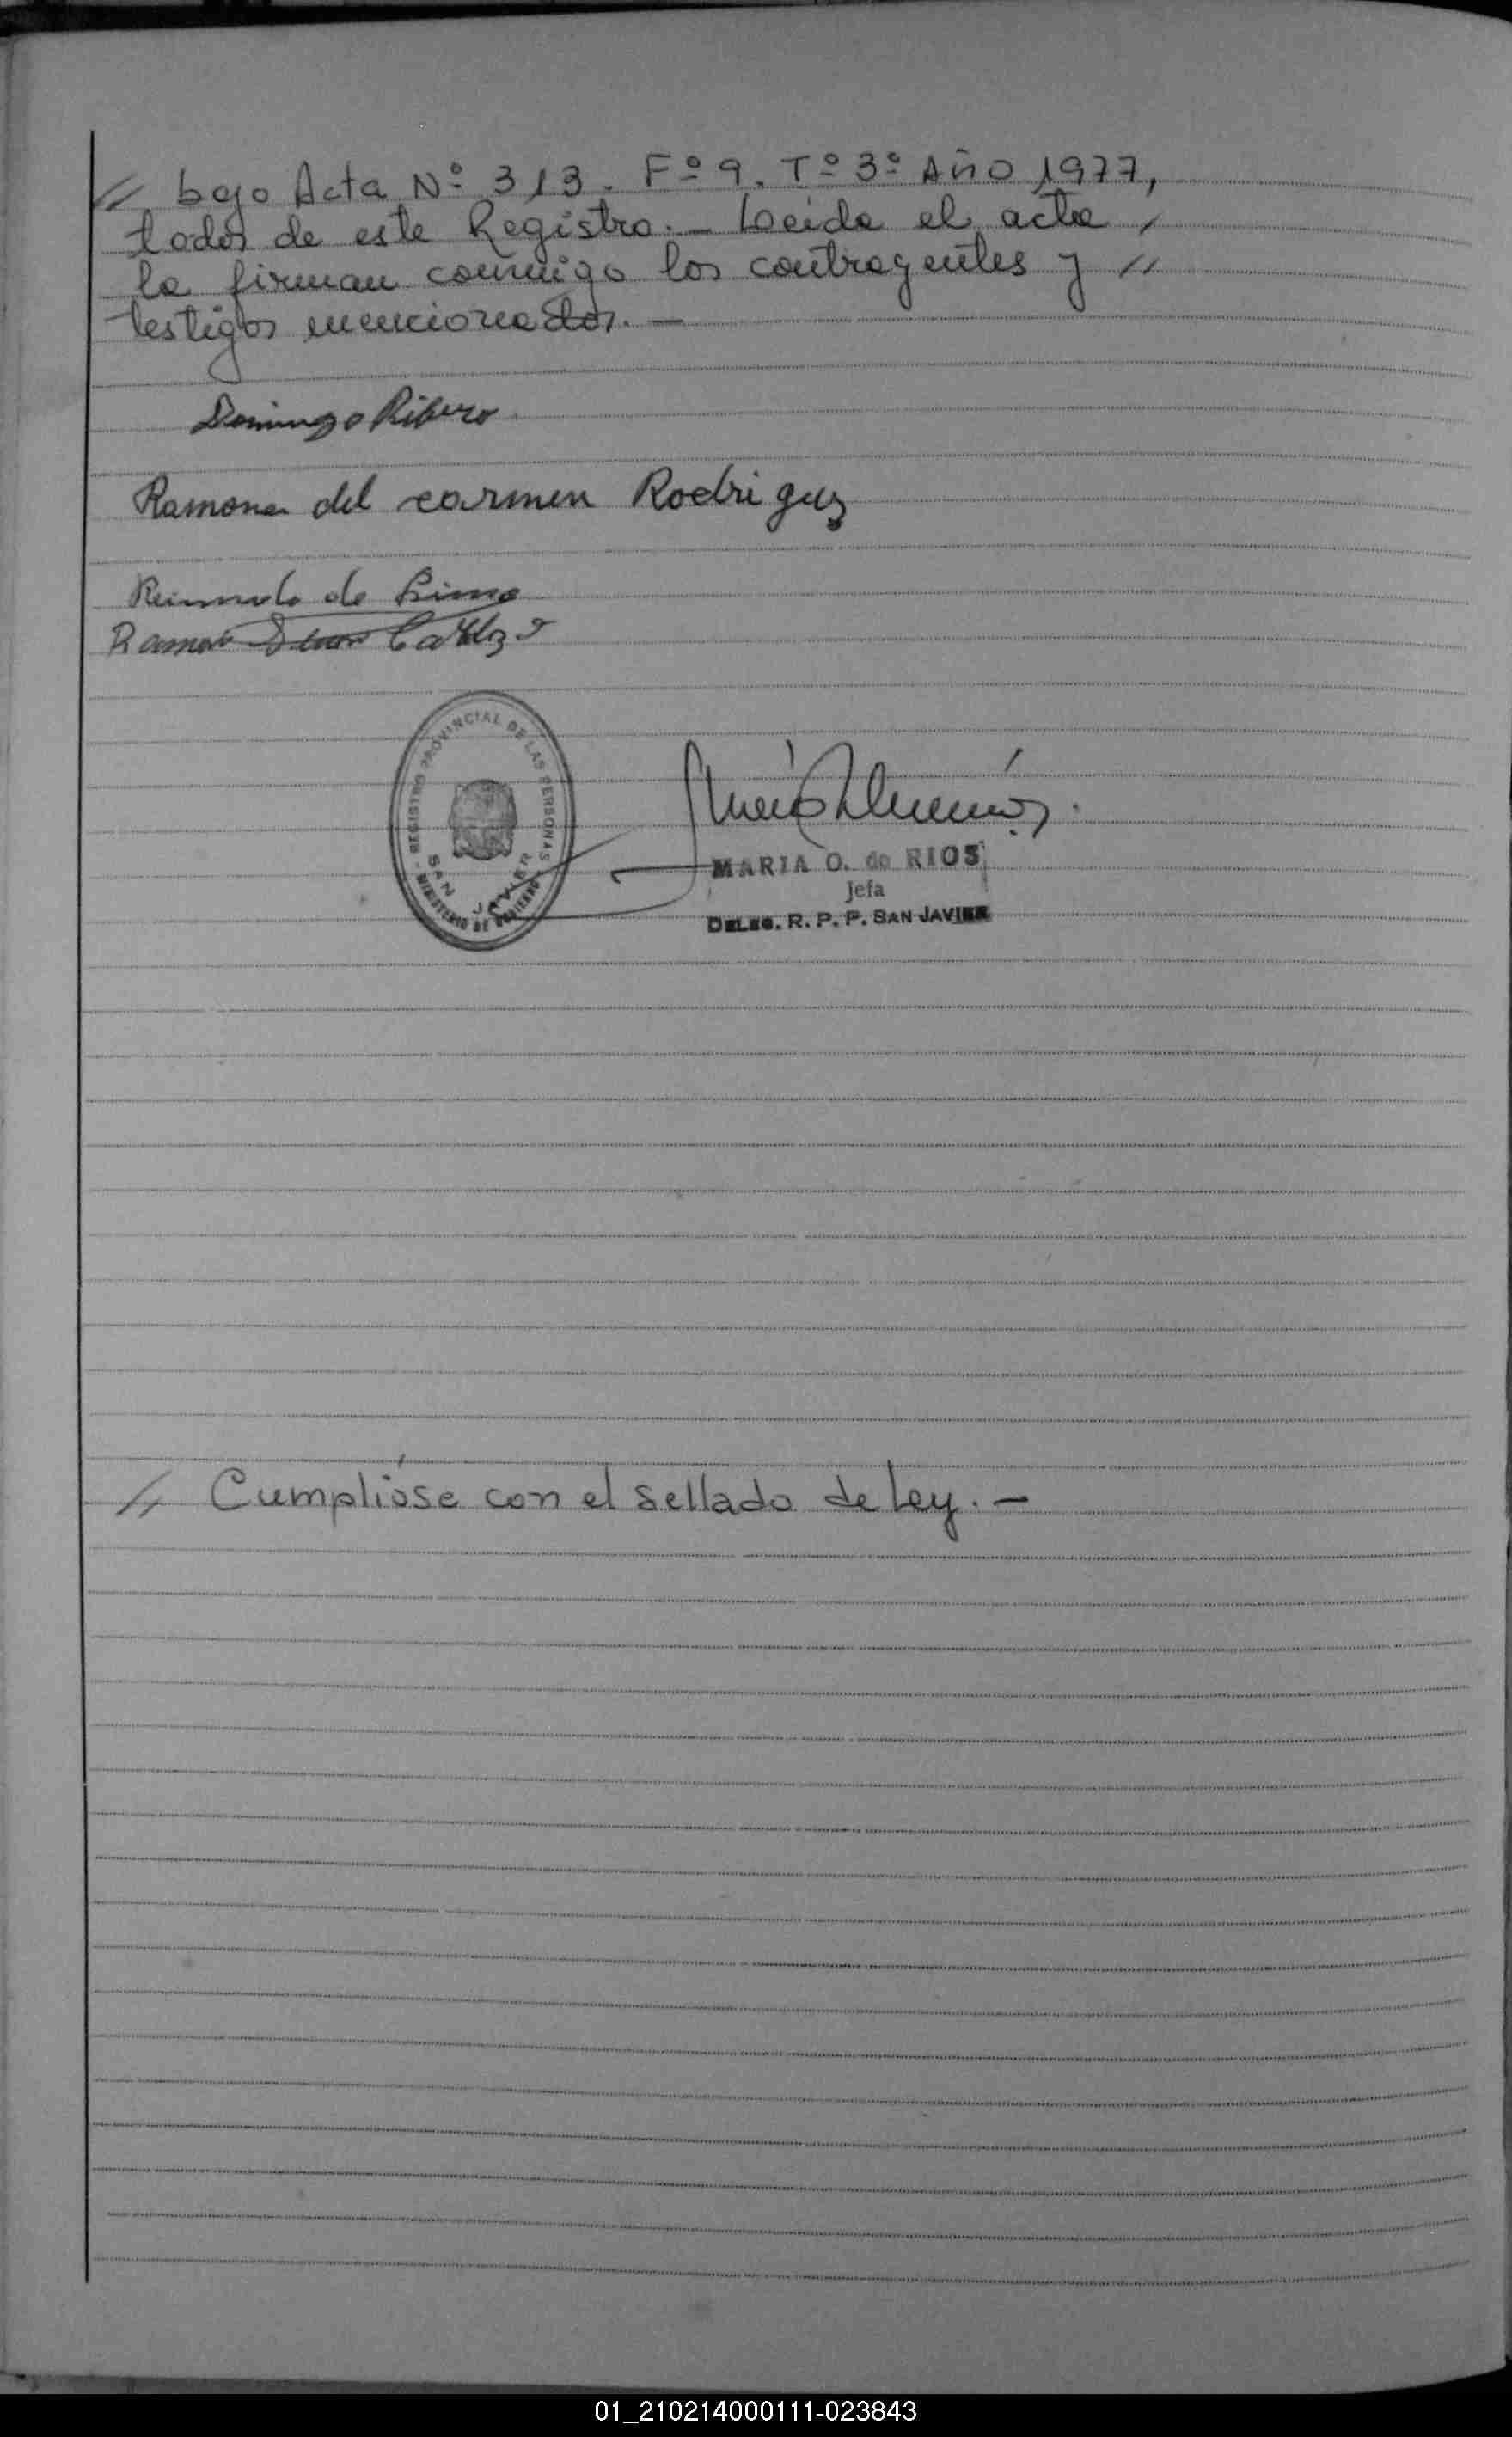 // bajo Acta Nº 313. Fº 9. Tº 3º Año 1977,
todos de este Registro.- Leida el acta,
la firman conmigo los contrayentes y //
testigos mencionados.-
Domingo Ribero
Ramona del carmen Rodriguez
de Lima
Ramon Cardozo
- REGISTRO PROVINCIAL DE LAS PERSONAS -
SAN JAVIER
MINISTERIO DE GOBIERNO
MARIA O. de RIOS
Jefa
DELEG. R. P. P. SAN JAVIER
// Cumplióse con el sellado de Ley.-
01_210214000111-023843